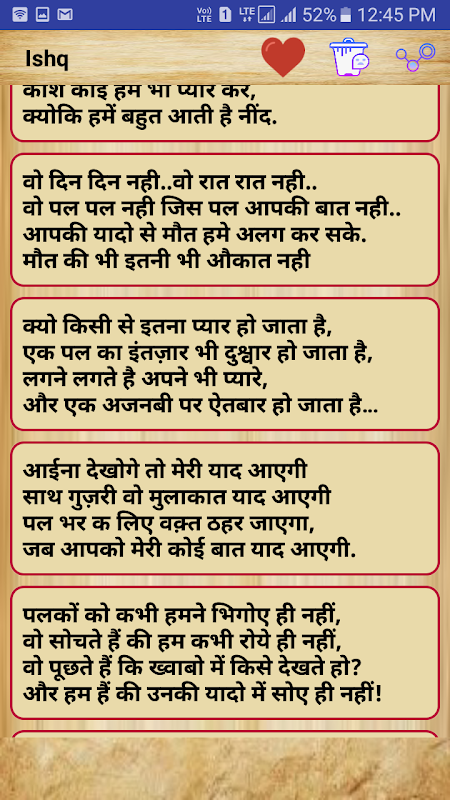 Vo) LTE 1 LTE 52% 12:45 PM
Ishq
काश कोई हमें भी प्यार करे,
क्योकि हमें बहुत आती है नींद.
वो दिन दिन नही..वो रात रात नही..
वो पल पल नही जिस पल आपकी बात नही..
आपकी यादो से मौत हमे अलग कर सके.
मौत की भी इतनी भी औकात नही
क्यो किसी से इतना प्यार हो जाता है,
एक पल का इंतज़ार भी दुश्वार हो जाता है,
लगने लगते है अपने भी प्यारे,
और एक अजनबी पर ऐतबार हो जाता है...
आईना देखोगे तो मेरी याद आएगी
साथ गुज़री वो मुलाकात याद आएगी
पल भर क लिए वक़्त ठहर जाएगा,
जब आपको मेरी कोई बात याद आएगी.
पलकों को कभी हमने भिगोए ही नहीं,
वो सोचते हैं की हम कभी रोये ही नहीं,
वो पूछते हैं कि ख्वाबो में किसे देखते हो?
और हम हैं की उनकी यादो में सोए ही नहीं!